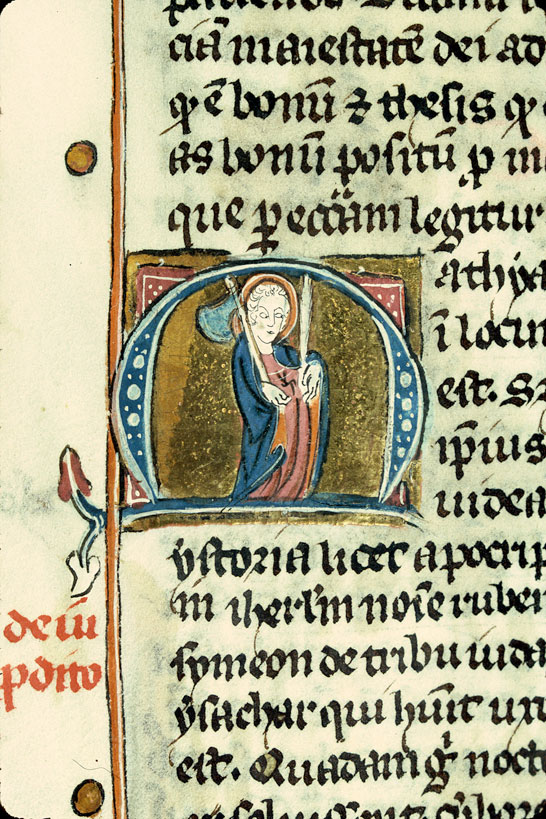 ciā maiestatē dei ad
qđ ē bonū ⁊ thesis qđ
as bonū positū ꝑ m
que ꝑ ecc̄iam legitur
athya
ī locum
est. S
ip̄ius
uidea
ystoria licet apocrip
in iherl'm noīe ruben
symeon de tribu iuda
ysachar qui huīt ux
est. Quadam g̓ nocte
de iu
ꝓdito